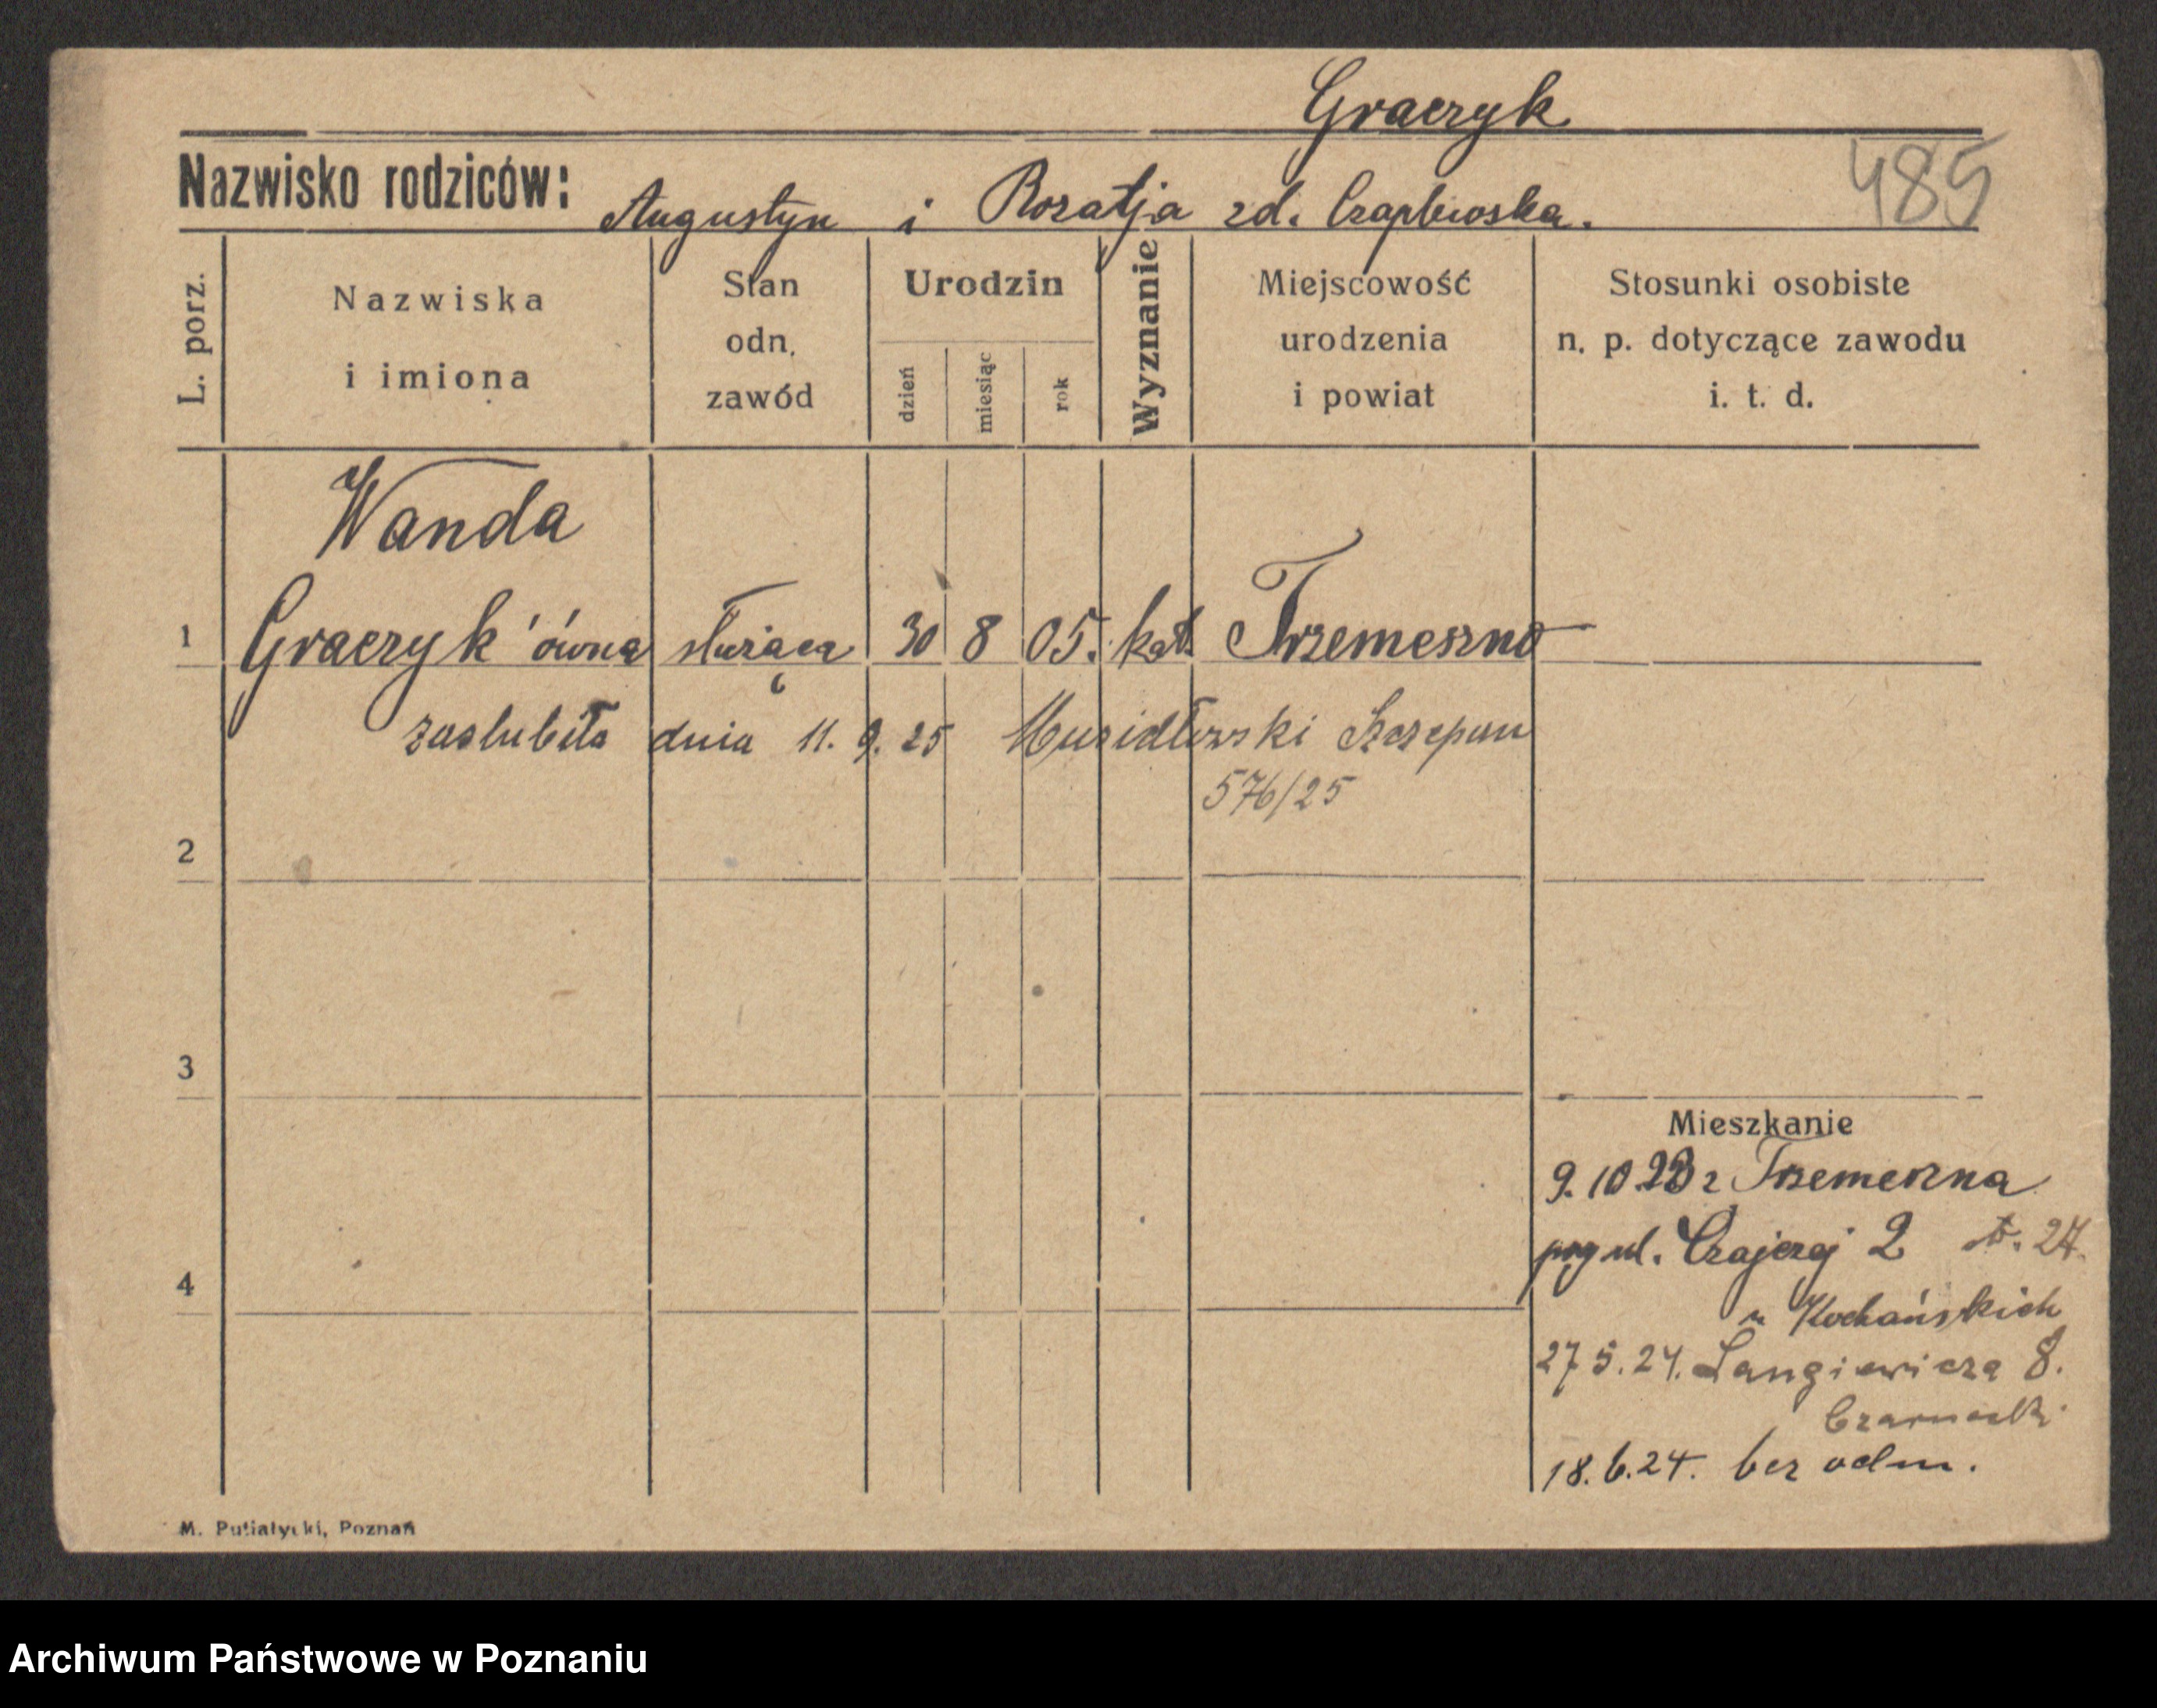 Graczyk
Nazwisko rodziców: Augustyn i Rozalja zd. Czaplewska. 485
L. porz.
Nazwiska i imiona
Stan odn. zawód
Urodzin
dzień miesiąc rok
Wyznanie
Miejscowość urodzenia i powiat
Stosunki osobiste n. p. dotyczące zawodu i. t. d.
Wanda
1 Graczyk'ówna służąca 30 8 05. kat. Trzemeszno
zaslubiła dnia 11. 9. 25 Muzidłowski Szczepan
576/25
2
3
Mieszkanie
9. 10 23 z Trzemeszna
przy ul. Czajczej 2 24.
4
u Kochańskich
27 5. 24. Langiewicza 8.
Czarnecki
18. 6. 24. bez odm.
M. Putiatycki, Poznań
Archiwum Państwowe w Poznaniu